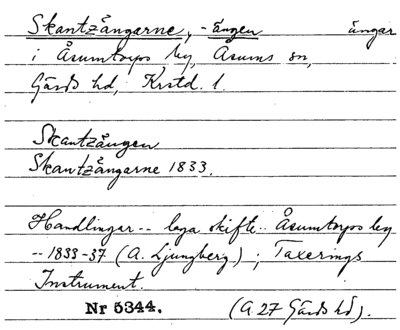 Skantzängarne, -ängen ängar
i Åsumtorps by, Åsums sn,
Gärds hd, Krstd. l.
Skantzängen
Skantzängarne 1833.
Handlingar -- laga skifte.. Åsumtorps by
-- 1833-37 (A. Ljungberg); Taxerings
Instrument.
Nr 5344. (A.27 Gärds hd).